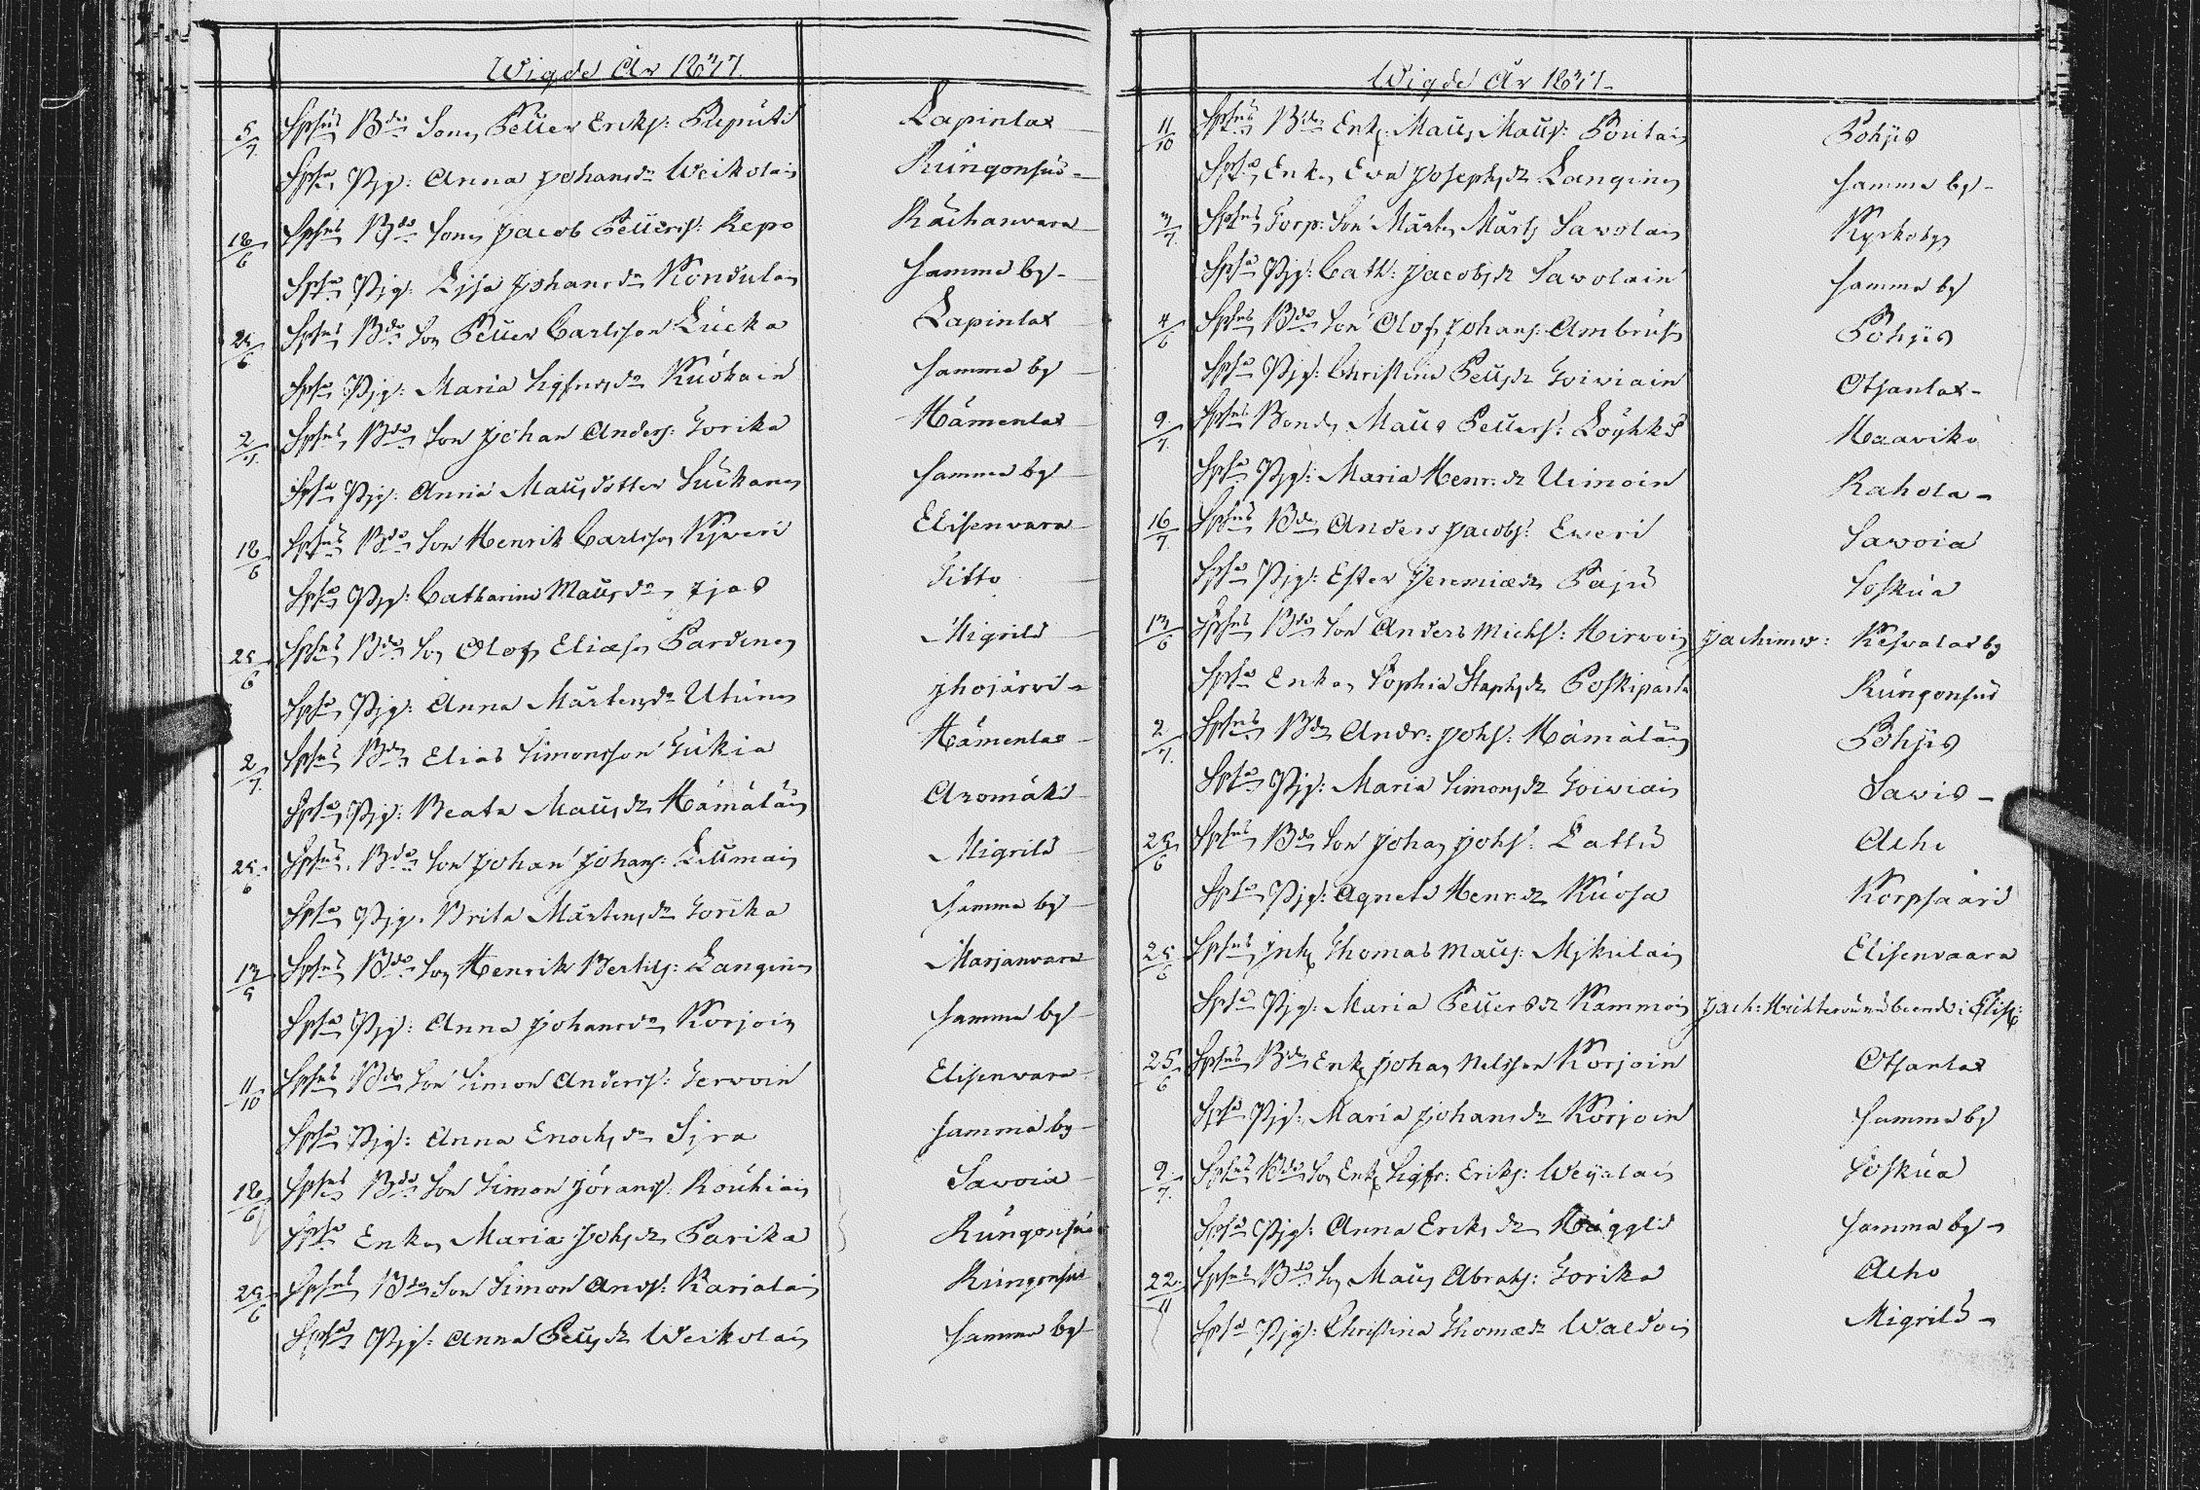 Wigde År 1837.
5/7 Sps: Bde Sonen Petter Ericks: Puputti Lapinlax
Spsa Pig: Anna Johansdr Weikolain Kungonsuo
18/6 Sps: Bde Sonen Jacob Petterss: Repo Räihänvara
Spsa Pig: Lisa Johansdr Kondulain samma by
24/6 Sps: Bde Son Petter Carlsson Lucka Lapinlax
Spsa Pig: Maria Sigfridsdr Kuokain samma by
2/7 Sps: Bde Son Johan Anders: Torika Hämenlax
Spsa Pig: Anna Matsdotter Suikanen samma by
18/6 Sps: Bde Son Henrik Carlsson Kiweri Elisenvara
Spsa Pig: Catharina Matsdr Ijas Ditto
25/6 Sps: Bde Son Olof Eliasson Pardinen Migrilä
Spsa Pig: Anna Mårtensdr Utunen Ihojärvi
2/7 Sps: Bden Elias Simonsson Tukia Hämenlax
Spsa Pig: Beata Matsdr Hämäläin Aromäki
25/6 Sps: Bde Son Johan Johans: Lillmain Migrilä
Spsa Pig: Brita Mårtensdr Torika Samma by
13/5 Sps: Bde Son Henrik Bertils: Langinen Marjanvara
Spsa Pig: Anna Johansdr Korjoin samma by
11/10 Sps: Bde Son Simon Anderss: Tervoin Elisenvara
Spsa Pig: Anna Enochsdr Sira samma by
18/6 Sps: Bde Son Simon Jöranss: Rouhiain Savoia
Spsa Enkan Maria Johsdr Parika Kungonsuo
29/6 Sps: Bde Son Simon Ands: Karialain Kungonsuo
Spsa Pig: Anna Pettsdr Weikolain samma by
Wigde År 1837
11/10 Sps: Bde Enkl: Matts Matts: Poutain Pohjis
Spsa Enkan Eva Josephsdr Langinen samma by
3/7 Sps: Torp: Son Mårten Mårts: Savolain Kyrkoby
Spsa Pig: Cath: Jacobsdr Savolain samma by
4/6 Sps: Bde Son Olof Johans: Ambrus Pohjis
Spsa Pig: Christina Pettsdr Toiviain Otsanlax
9/7 Sps: Bonden Matts Petters: Löyhkö Haaviko
Spsa Pig: Maria Henr:dr Uimoin Rahola
16/7 Sps: Bden Anders Jacobs: Eweri Savoia
Spsa Pig: Ester Jeremiædr Paju Soskua
13/6 Sps: Bde Son Anders Michs: Hirvoin Jachimv: Kesvalax by
Spsa Enkan Sophia Staphsdr Poskiparta Kungonsuo
2/7 Sps: Bden Andr: Johs: Hämäläin Pohjis
Spsa Pig: Maria Simonsdr Toiviain Savio
29/6 Sps: Bde Son Johan Johs: Lattu Aeho
Spsa Pig: Agneta Henr:dr Kuosa Korpsaari
25/6 Sps: Inh: Thomas Matts: Mikulain Elisenvaara
Spsa Pig: Maria Pettersdr Kammoin
25/6 Sps: Bde Enkl Johan Nilsson Korjoin Otsanlax
Spsa Pig: Maria Johansdr Korjoin samma by
9/7 Sps: Bde Son Enkl Sigfr: Eriks: Weijalain Soskua
Spsa Pig: Anna Ericksdr samma by
22/11 Sps: Bde Son Matts Abrahs: Torika Aeho
Spsa Pig: Christina Thomædr Waldoin Migrilä